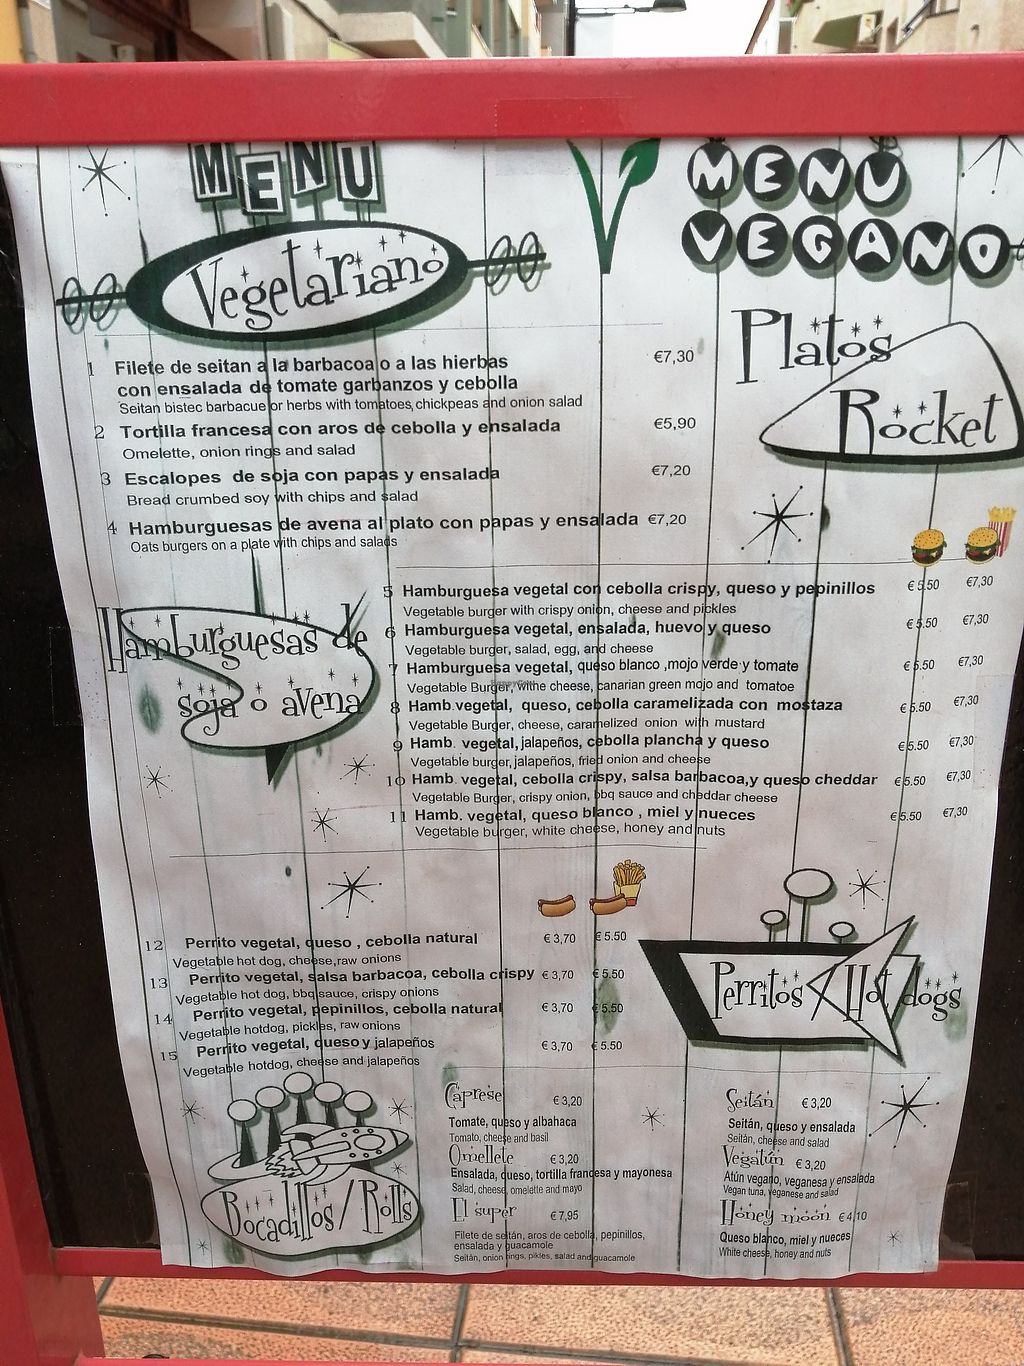 MENU
Vegetariano
MENÚ
VEGANO
Platos
Rocket
1 Filete de seitan a la barbacoa o a las hierbas €7,30
con ensalada de tomate garbanzos y cebolla
Seitan bistec barbacue or herbs with tomatoes, chickpeas and onion salad
2 Tortilla francesa con aros de cebolla y ensalada €5,90
Omelette, onion rings and salad
3 Escalopes de soja con papas y ensalada €7,20
Bread crumbed soy with chips and salad
4 Hamburguesas de avena al plato con papas y ensalada €7,20
Oats burgers on a plate with chips and salads
Hamburguesas de
soja o avena
5 Hamburguesa vegetal con cebolla crispy, queso y pepinillos € 5.50 €7,30
Vegetable burger with crispy onion, cheese and pickles
6 Hamburguesa vegetal, ensalada, huevo y queso € 5.50 €7,30
Vegetable burger, salad, egg, and cheese
7 Hamburguesa vegetal, queso blanco ,mojo verde y tomate € 5.50 €7,30
Vegetable Burger, withe cheese, canarian green mojo and tomatoe
8 Hamb.vegetal, queso, cebolla caramelizada con mostaza € 5.50 €7,30
Vegetable Burger, cheese, caramelized onion with mustard
9 Hamb. vegetal, jalapeños, cebolla plancha y queso € 5.50 €7,30
Vegetable burger, jalapeños, fried onion and cheese
10 Hamb. vegetal, cebolla crispy, salsa barbacoa,y queso cheddar € 5.50 €7,30
Vegetable Burger, crispy onion, bbq sauce and cheddar cheese
11 Hamb. vegetal, queso blanco , miel y nueces € 5.50 €7,30
Vegetable burger, white cheese, honey and nuts
12 Perrito vegetal, queso , cebolla natural € 3,70 € 5.50
Vegetable hot dog, cheese,raw onions
13 Perrito vegetal, salsa barbacoa, cebolla crispy € 3,70 € 5.50
Vegetable hot dog, bbq sauce, crispy onions
14 Perrito vegetal, pepinillos, cebolla natural € 3,70 € 5.50
Vegetable hotdog, pickles, raw onions
15 Perrito vegetal, queso y jalapeños € 3,70 € 5.50
Vegetable hotdog, cheese and jalapeños
Perritos / Hot dogs
Bocadillos / Rolls
Caprese € 3,20
Tomate, queso y albahaca
Tomato, cheese and basil
Omellete € 3,20
Ensalada, queso, tortilla francesa y mayonesa
Salad, cheese, omelette and mayo
El super € 7,95
Filete de seitán, aros de cebolla, pepinillos,
ensalada y guacamole
Seitán, onion rings, pikles, salad and guacamole
Seitán € 3,20
Seitán, queso y ensalada
Seitán, cheese and salad
Vegatún € 3,20
Atún vegano, veganesa y ensalada
Vegan tuna, veganese and salad
Honey moon € 4,10
Queso blanco, miel y nueces
White cheese, honey and nuts